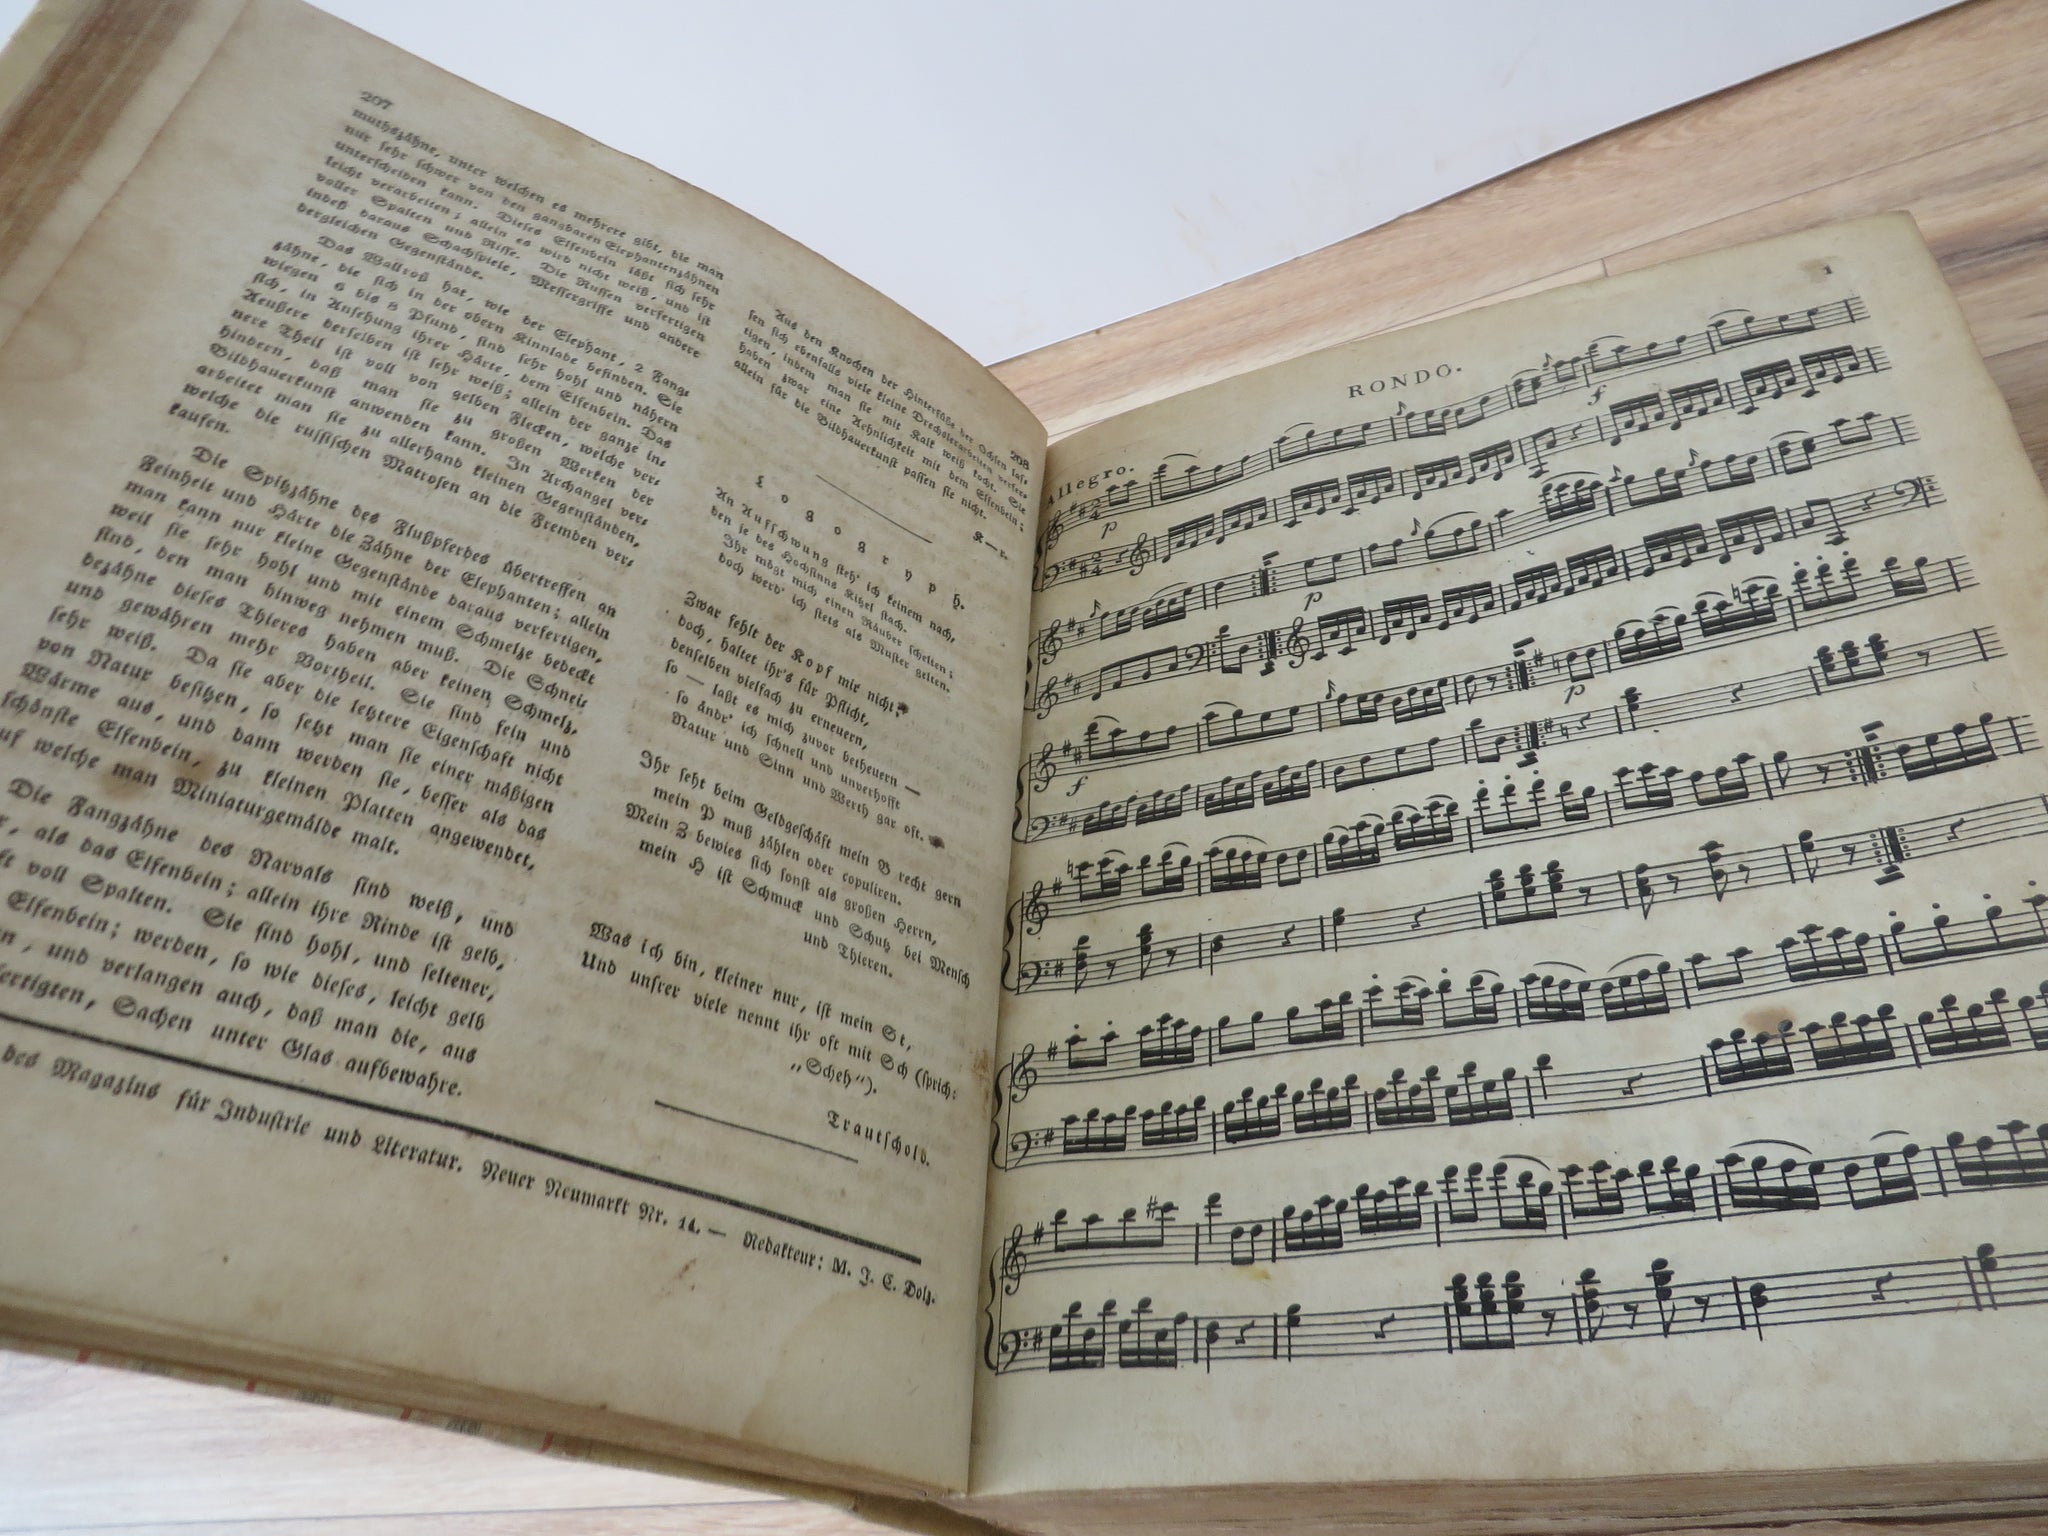 207
muthszähne, unter welchen es mehrere gibt, die man
nur sehr schwer von den gangbaren Elephantenzähnen
unterscheiden kann. Dieses Elfenbein läßt sich sehr
leicht verarbeiten; allein es wird nicht weiß, und ist
voller Spalten und Risse. Die Russen verfertigen
indeß daraus Schachspiele, Messergriffe und andere
dergleichen Gegenstände.
Das Wallroß hat, wie der Elephant, 2 Fang-
zähne, die sich in der obern Kinnlade befinden. Sie
wiegen 6 bis 8 Pfund, sind sehr hohl und nähern
sich, in Ansehung ihrer Härte, dem Elfenbein. Das
Aeußere derselben ist sehr weiß; allein der ganze in-
nere Theil ist voll von gelben Flecken, welche ver-
hindern, daß man sie zu großen Werken der
Bildhauerkunst anwenden kann. In Archangel ver-
arbeitet man sie zu allerhand kleinen Gegenständen,
welche die russischen Matrosen an die Fremden ver-
kaufen.
Die Spitzzähne des Flußpferdes übertreffen an
Feinheit und Härte die Zähne der Elephanten; allein
man kann nur kleine Gegenstände daraus verfertigen,
weil sie sehr hohl und mit einem Schmelze bedeckt
sind, den man hinweg nehmen muß. Die Schnei-
dezähne dieses Thieres haben aber keinen Schmelz,
und gewähren mehr Vortheil. Sie sind fein und
sehr weiß. Da sie aber die letztere Eigenschaft nicht
von Natur besitzen, so setzt man sie einer mäßigen
Wärme aus, und dann werden sie, besser als das
schönste Elfenbein, zu kleinen Platten angewendet,
auf welche man Miniaturgemälde malt.
Die Fangzähne des Narvals sind weiß, und
als das Elfenbein; allein ihre Rinde ist gelb,
voll Spalten. Sie sind hohl, und seltener,
Elfenbein; werden, so wie dieses, leicht gelb
und verlangen auch, daß man die, aus
fertigten, Sachen unter Glas aufbewahre.
208
Aus den Knochen der Hinterfüße der Ochsen las-
sen sich ebenfalls viele kleine Drechslerarbeiten verfer-
tigen, indem man sie mit Kalk weiß kocht. Sie
haben zwar eine Aehnlichkeit mit dem Elfenbein;
allein für die Bildhauerkunst passen sie nicht.
K—r.
Logogryph.
An Aufschwung steh' ich keinem nach,
den je des Hochsinns Kitzel stach.
Ihr mögt mich einen Räuber schelten;
doch werd' ich stets als Muster gelten.
Zwar fehlt der Kopf mir nicht;
doch, haltet ihr's für Pflicht,
denselben vielfach zu erneuern,
so — laßt es mich zuvor betheuern —
so ändr' ich schnell und unverhofft
Natur und Sinn und Werth gar oft.
Ihr seht beim Geldgeschäft mein B recht gern
mein P muß zählen oder copuliren.
Mein Z bewies sich sonst als großen Herrn,
mein H ist Schmuck und Schutz bei Mensch
und Thieren.
Was ich bin, kleiner nur, ist mein St,
Und unsrer viele nennt ihr oft mit Sch (sprich:
„Scheh").
Trautschold.
des Magazins für Industrie und Literatur. Neuer Neumarkt Nr. 14. — Redakteur: M. J. C. Dolz.
1
RONDO.
Allegro.
p
f
p
f
p